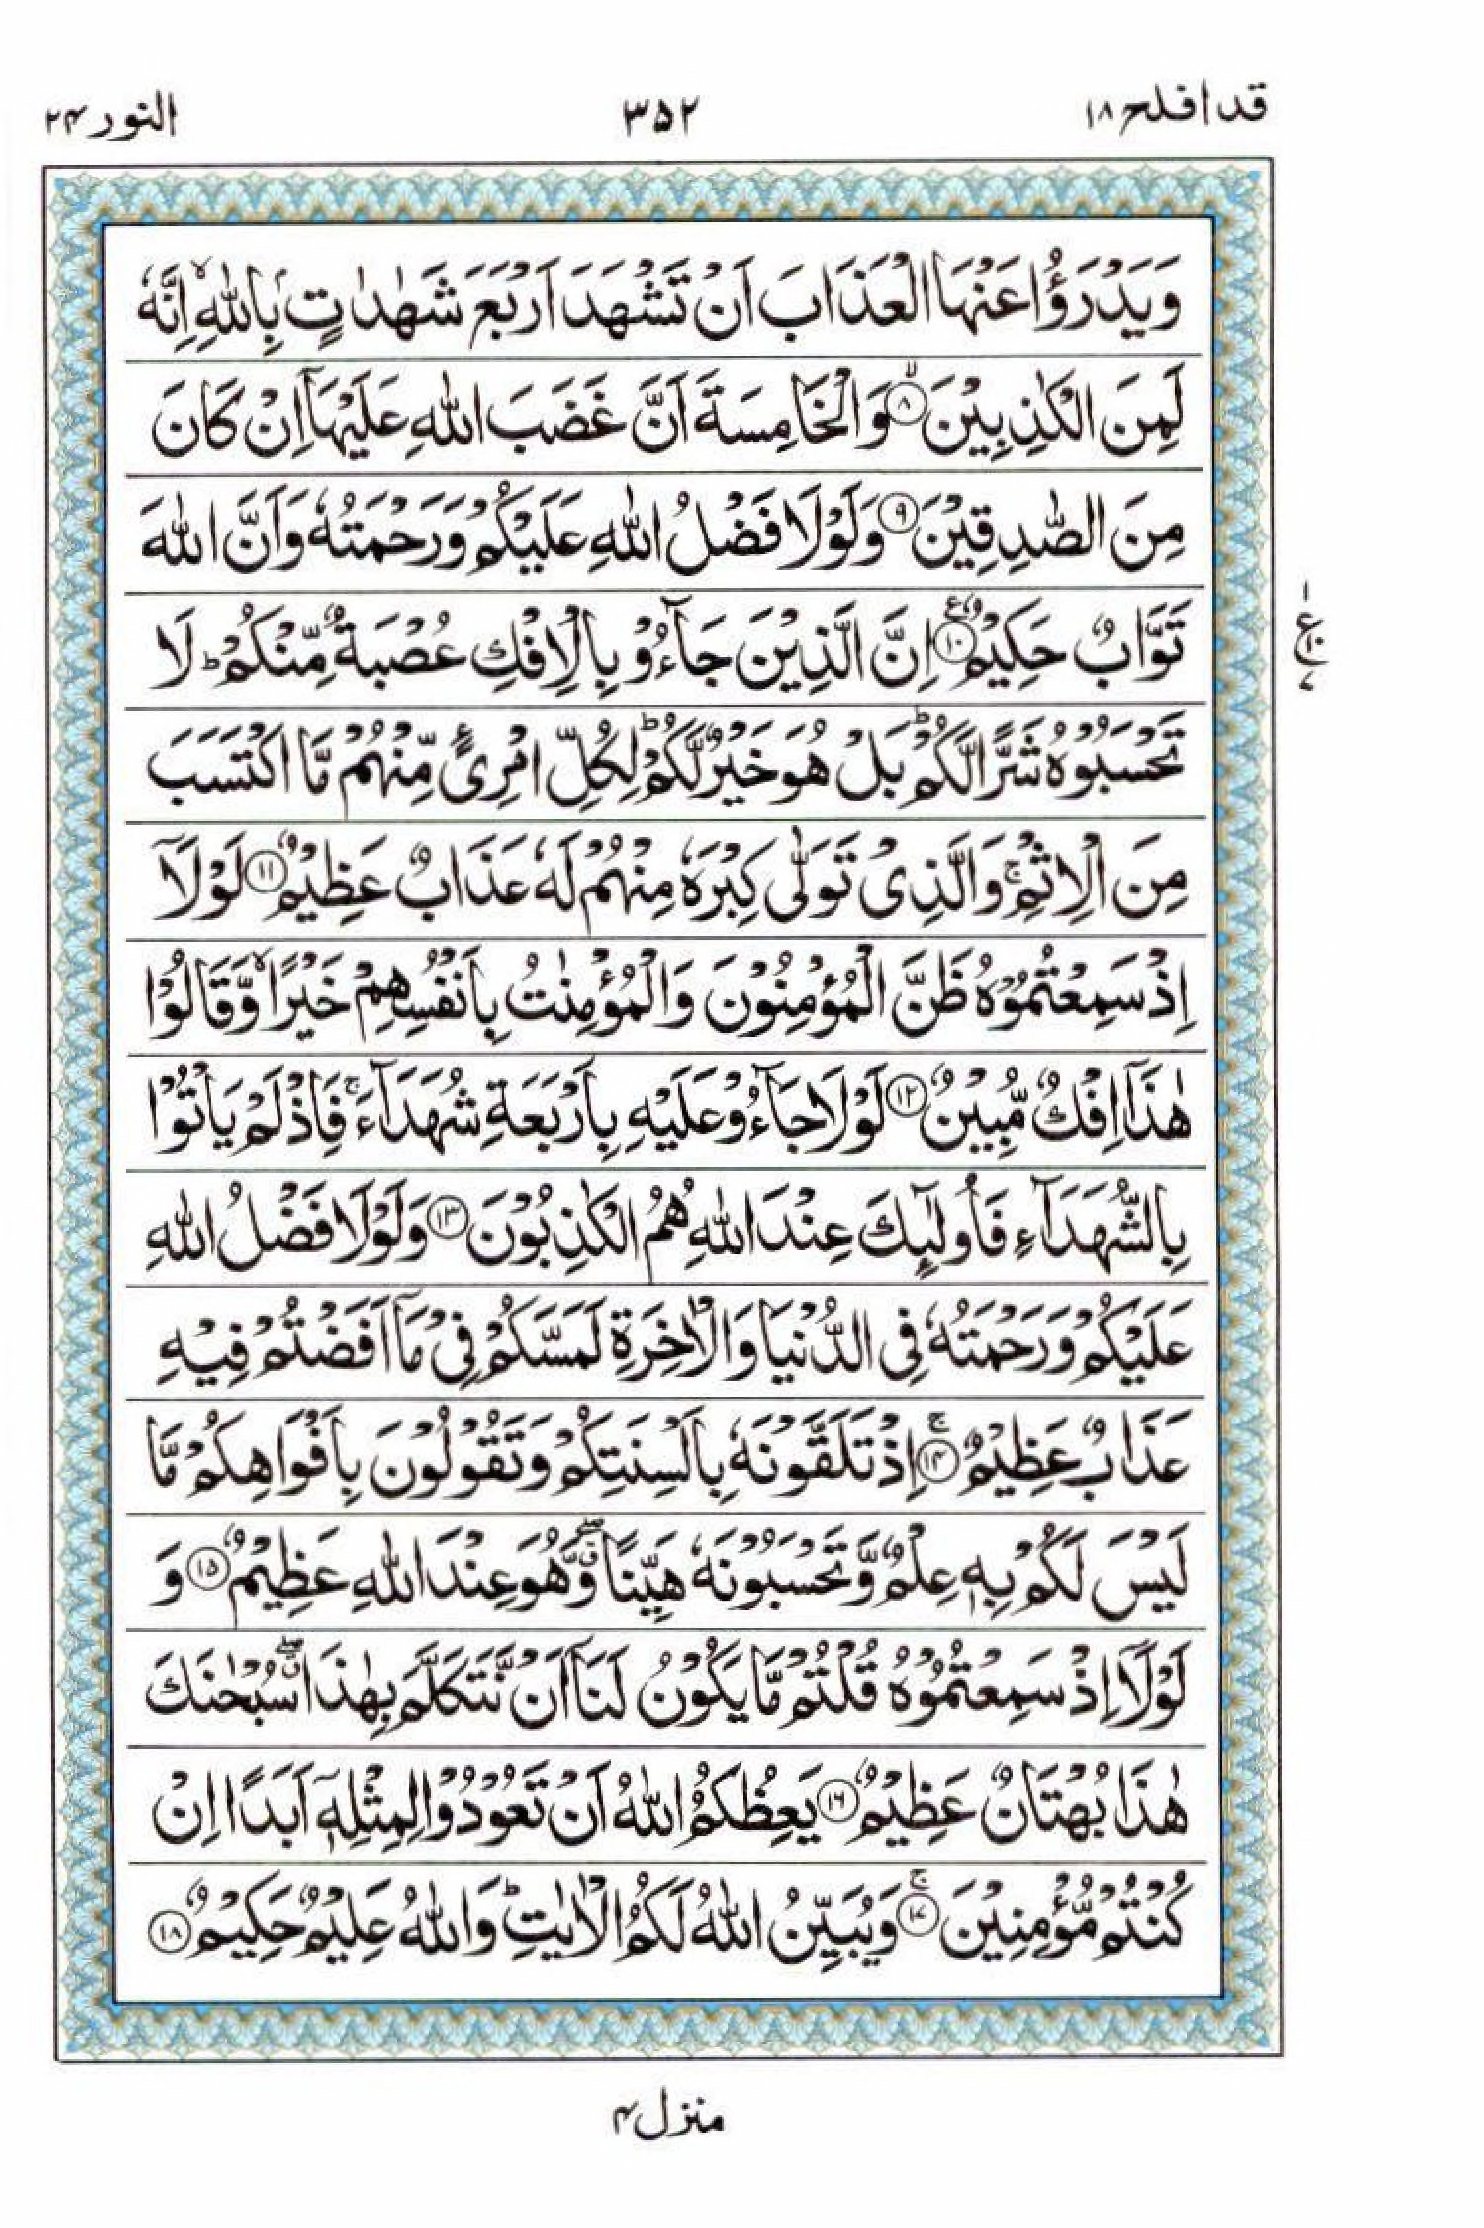 قد افلح ١٨
٣٥٢
النور ٢٤
وَيَدْرَؤُا عَنْهَا الْعَذَابَ اَنْ تَشْهَدَ اَرْبَعَ شَهٰدٰتٍۭ بِاللّٰهِ ۙ اِنَّهٗ
لَمِنَ الْكٰذِبِيْنَ ۙ﴿٨﴾ وَالْخَامِسَةَ اَنَّ غَضَبَ اللّٰهِ عَلَيْهَاۤ اِنْ كَانَ
مِنَ الصّٰدِقِيْنَ ﴿٩﴾ وَلَوْلَا فَضْلُ اللّٰهِ عَلَيْكُمْ وَرَحْمَتُهٗ وَاَنَّ اللّٰهَ
تَوَّابٌ حَكِيْمٌ ﴿١٠﴾ اِنَّ الَّذِيْنَ جَآءُوْ بِالْاِفْكِ عُصْبَةٌ مِّنْكُمْ ؕ لَا
تَحْسَبُوْهُ شَرًّا لَّكُمْ ؕ بَلْ هُوَ خَيْرٌ لَّكُمْ ؕ لِكُلِّ امْرِئٍ مِّنْهُمْ مَّا اكْتَسَبَ
مِنَ الْاِثْمِ ۚ وَالَّذِيْ تَوَلّٰى كِبْرَهٗ مِنْهُمْ لَهٗ عَذَابٌ عَظِيْمٌ ﴿١١﴾ لَوْلَاۤ
اِذْ سَمِعْتُمُوْهُ ظَنَّ الْمُؤْمِنُوْنَ وَالْمُؤْمِنٰتُ بِاَنْفُسِهِمْ خَيْرًا ۙ وَّقَالُوْا
هٰذَاۤ اِفْكٌ مُّبِيْنٌ ﴿١٢﴾ لَوْلَا جَآءُوْ عَلَيْهِ بِاَرْبَعَةِ شُهَدَآءَ ۚ فَاِذْ لَمْ يَاْتُوْا
بِالشُّهَدَآءِ فَاُولٰٓئِكَ عِنْدَ اللّٰهِ هُمُ الْكٰذِبُوْنَ ﴿١٣﴾ وَلَوْلَا فَضْلُ اللّٰهِ
عَلَيْكُمْ وَرَحْمَتُهٗ فِي الدُّنْيَا وَالْاٰخِرَةِ لَمَسَّكُمْ فِيْ مَاۤ اَفَضْتُمْ فِيْهِ
عَذَابٌ عَظِيْمٌ ۚ﴿١٤﴾ اِذْ تَلَقَّوْنَهٗ بِاَلْسِنَتِكُمْ وَتَقُوْلُوْنَ بِاَفْوَاهِكُمْ مَّا
لَيْسَ لَكُمْ بِهٖ عِلْمٌ وَّتَحْسَبُوْنَهٗ هَيِّنًا ۖۗ وَّهُوَ عِنْدَ اللّٰهِ عَظِيْمٌ ﴿١٥﴾ وَ
لَوْلَاۤ اِذْ سَمِعْتُمُوْهُ قُلْتُمْ مَّا يَكُوْنُ لَنَاۤ اَنْ نَّتَكَلَّمَ بِهٰذَا ۖۗ سُبْحٰنَكَ
هٰذَا بُهْتَانٌ عَظِيْمٌ ﴿١٦﴾ يَعِظُكُمُ اللّٰهُ اَنْ تَعُوْدُوْا لِمِثْلِهٖۤ اَبَدًا اِنْ
كُنْتُمْ مُّؤْمِنِيْنَ ۚ﴿١٧﴾ وَيُبَيِّنُ اللّٰهُ لَكُمُ الْاٰيٰتِ ؕ وَاللّٰهُ عَلِيْمٌ حَكِيْمٌ ﴿١٨﴾
١
ع ١٠
٧
منزل ٤